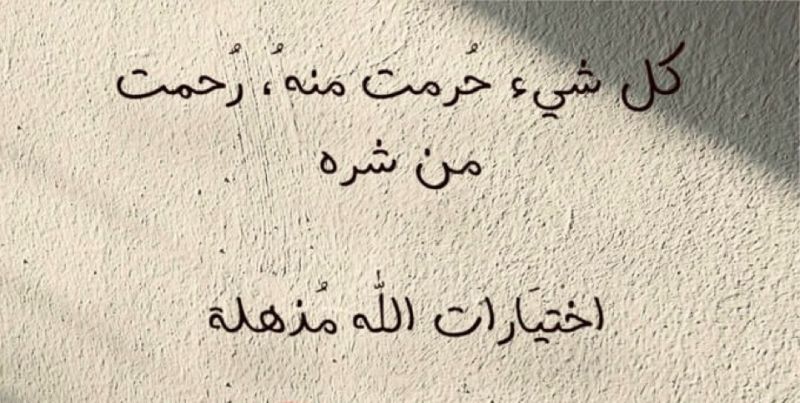 كل شيء حُرمت منهُ، رُحمت
من شره
اختيَارات اللّٰه مُذهلة